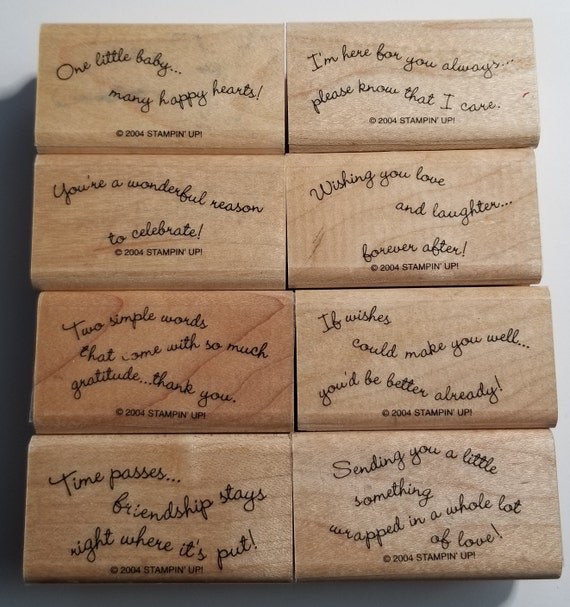 One little baby...
many happy hearts!
© 2004 STAMPIN' UP!
I'm here for you always...
please know that I care.
© 2004 STAMPIN' UP!
You're a wonderful reason
to celebrate!
© 2004 STAMPIN' UP!
Wishing you love
and laughter...
forever after!
© 2004 STAMPIN' UP!
Two simple words
that come with so much
gratitude...thank you.
© 2004 STAMPIN' UP!
If wishes
could make you well...
you'd be better already!
© 2004 STAMPIN' UP!
Time passes...
friendship stays
right where it's put!
© 2004 STAMPIN' UP!
Sending you a little
something
wrapped in a whole lot
of love!
© 2004 STAMPIN' UP!